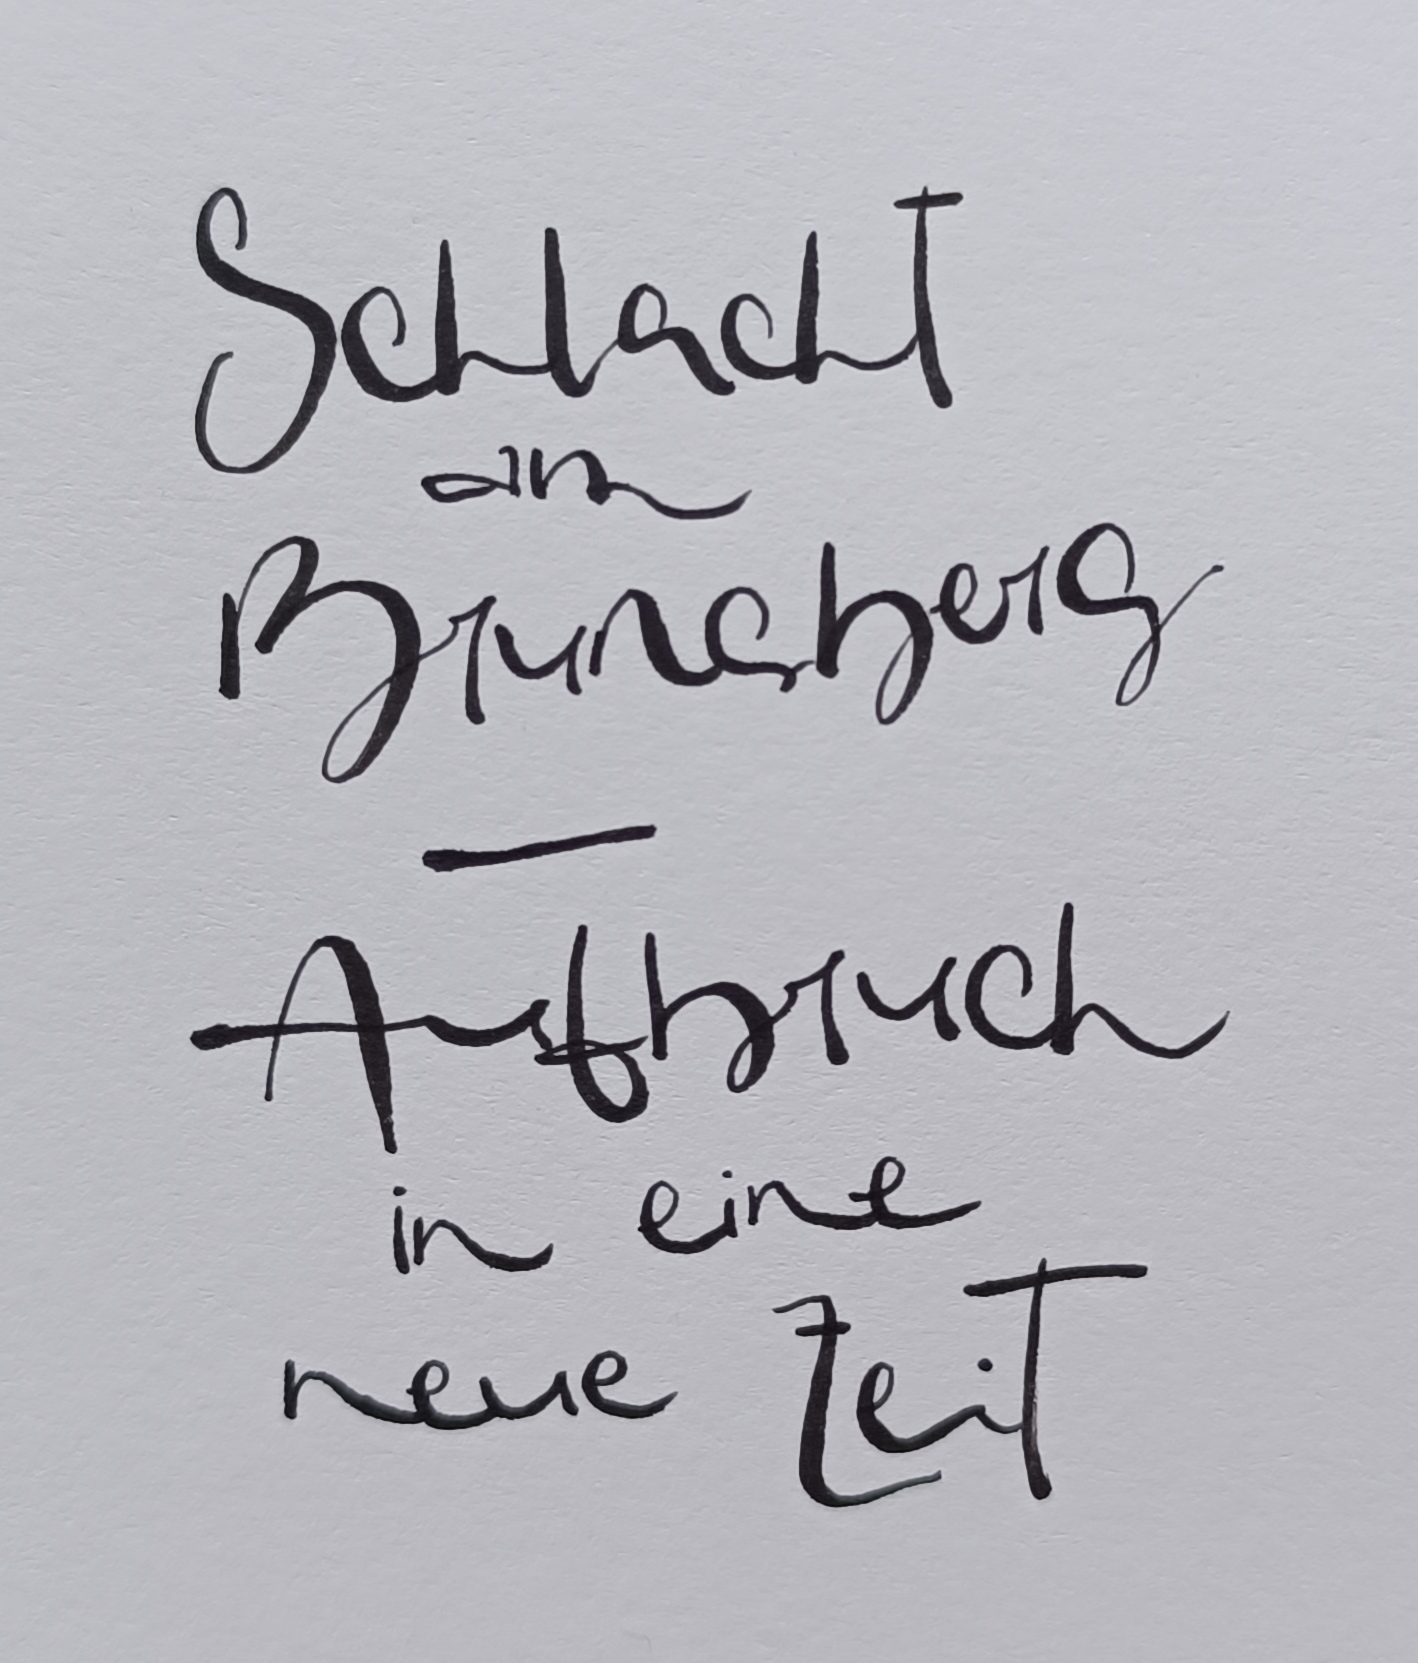 Schlacht
am
Brunsberg
—
Aufbruch
in eine
neue Zeit